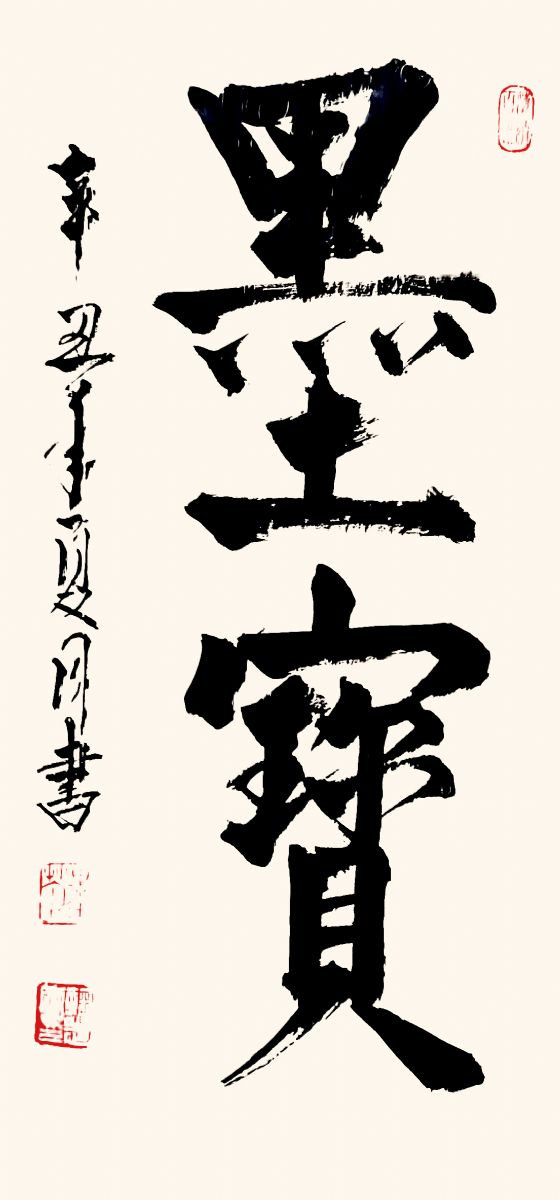 墨寶
辛丑年夏月書